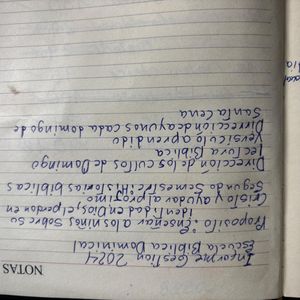 NOTAS
Informe Gestion 2024
Escuela Biblica Dominical
Proposito: Enseñar a los niños sobre su
identidad en Dios, el perdon en
Cristo y ayudar al projimo
Segundo Semestre: Historias biblicas
Dirección de los cultos de Domingo
Lectura Biblica
Versiculo aprendido
Dirección de ayunos cada domingo de
Santa Cena